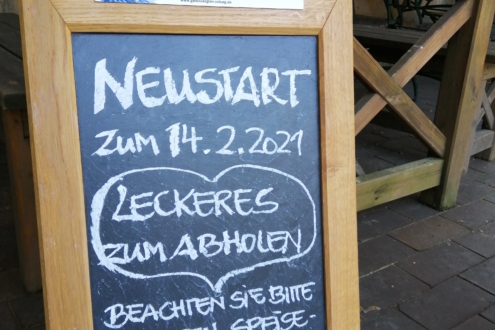 NEUSTART
ZUM 14.2.2021
LECKERES
ZUM ABHOLEN
BEACHTEN SIE BITTE
SPEISE-